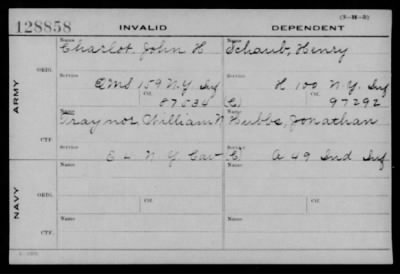 (3-H-5)
128858 INVALID DEPENDENT
Name Name
Charlot, John H Schaub, Henry
ARMY
ORIG.
Service Service
C.M.S 159 N.Y. Inf H 100 N.Y. Inf
Ctf. Ctf.
87034 C) 97292
Name Name
Traynor, William N Hubbs, Jonathan
CTF.
Service Service
C 2 N Y Cav C) A 49 Ind Inf
NAVY
Name Name
ORIG.
Service Ctf. Service Ctf.
Name Name
CTF.